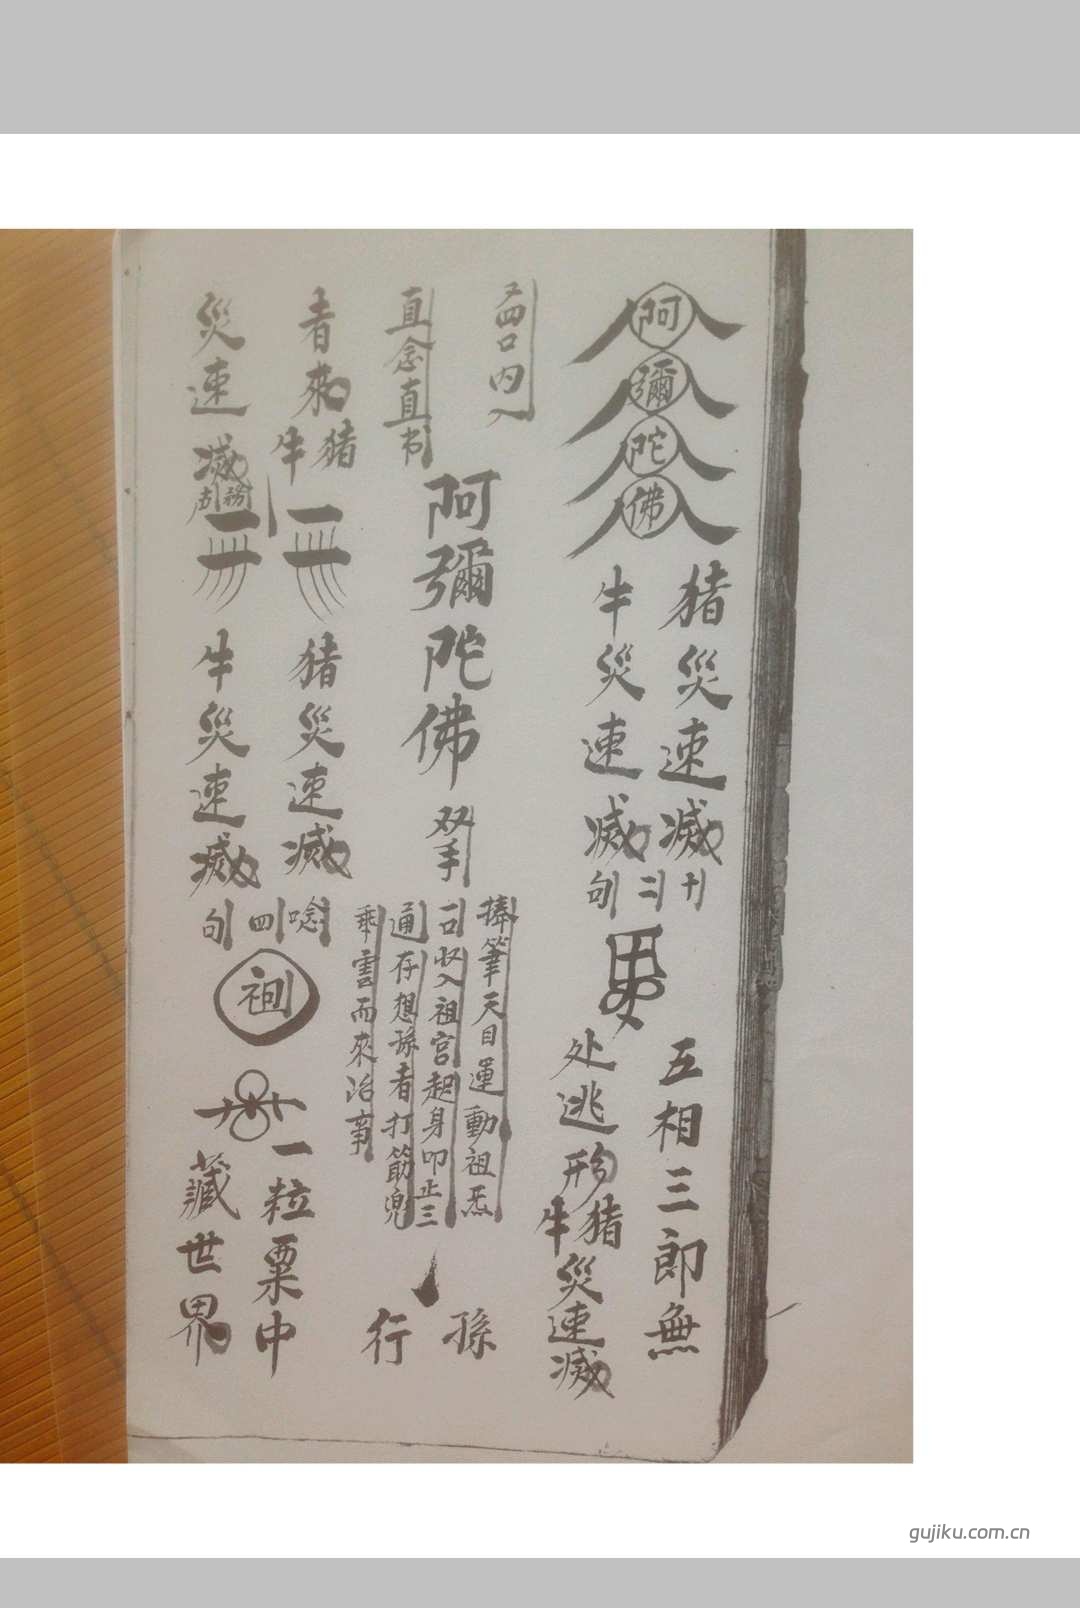 阿
彌
陀
佛
猪災速滅
牛災速滅
句
五相三郎無
处逃形
猪
牛
災速滅
四口内入
直念直书
阿彌陀佛
双手
捧筆天目運動祖炁
一口收入祖宫起身叩止三
通存想孫者打筋兜
乘雲而來治事
孫
行
者來
猪
牛
災速滅
猪災速滅
牛災速滅
唸
四
句
祖
一粒粟中
藏世界
gujiku.com.cn